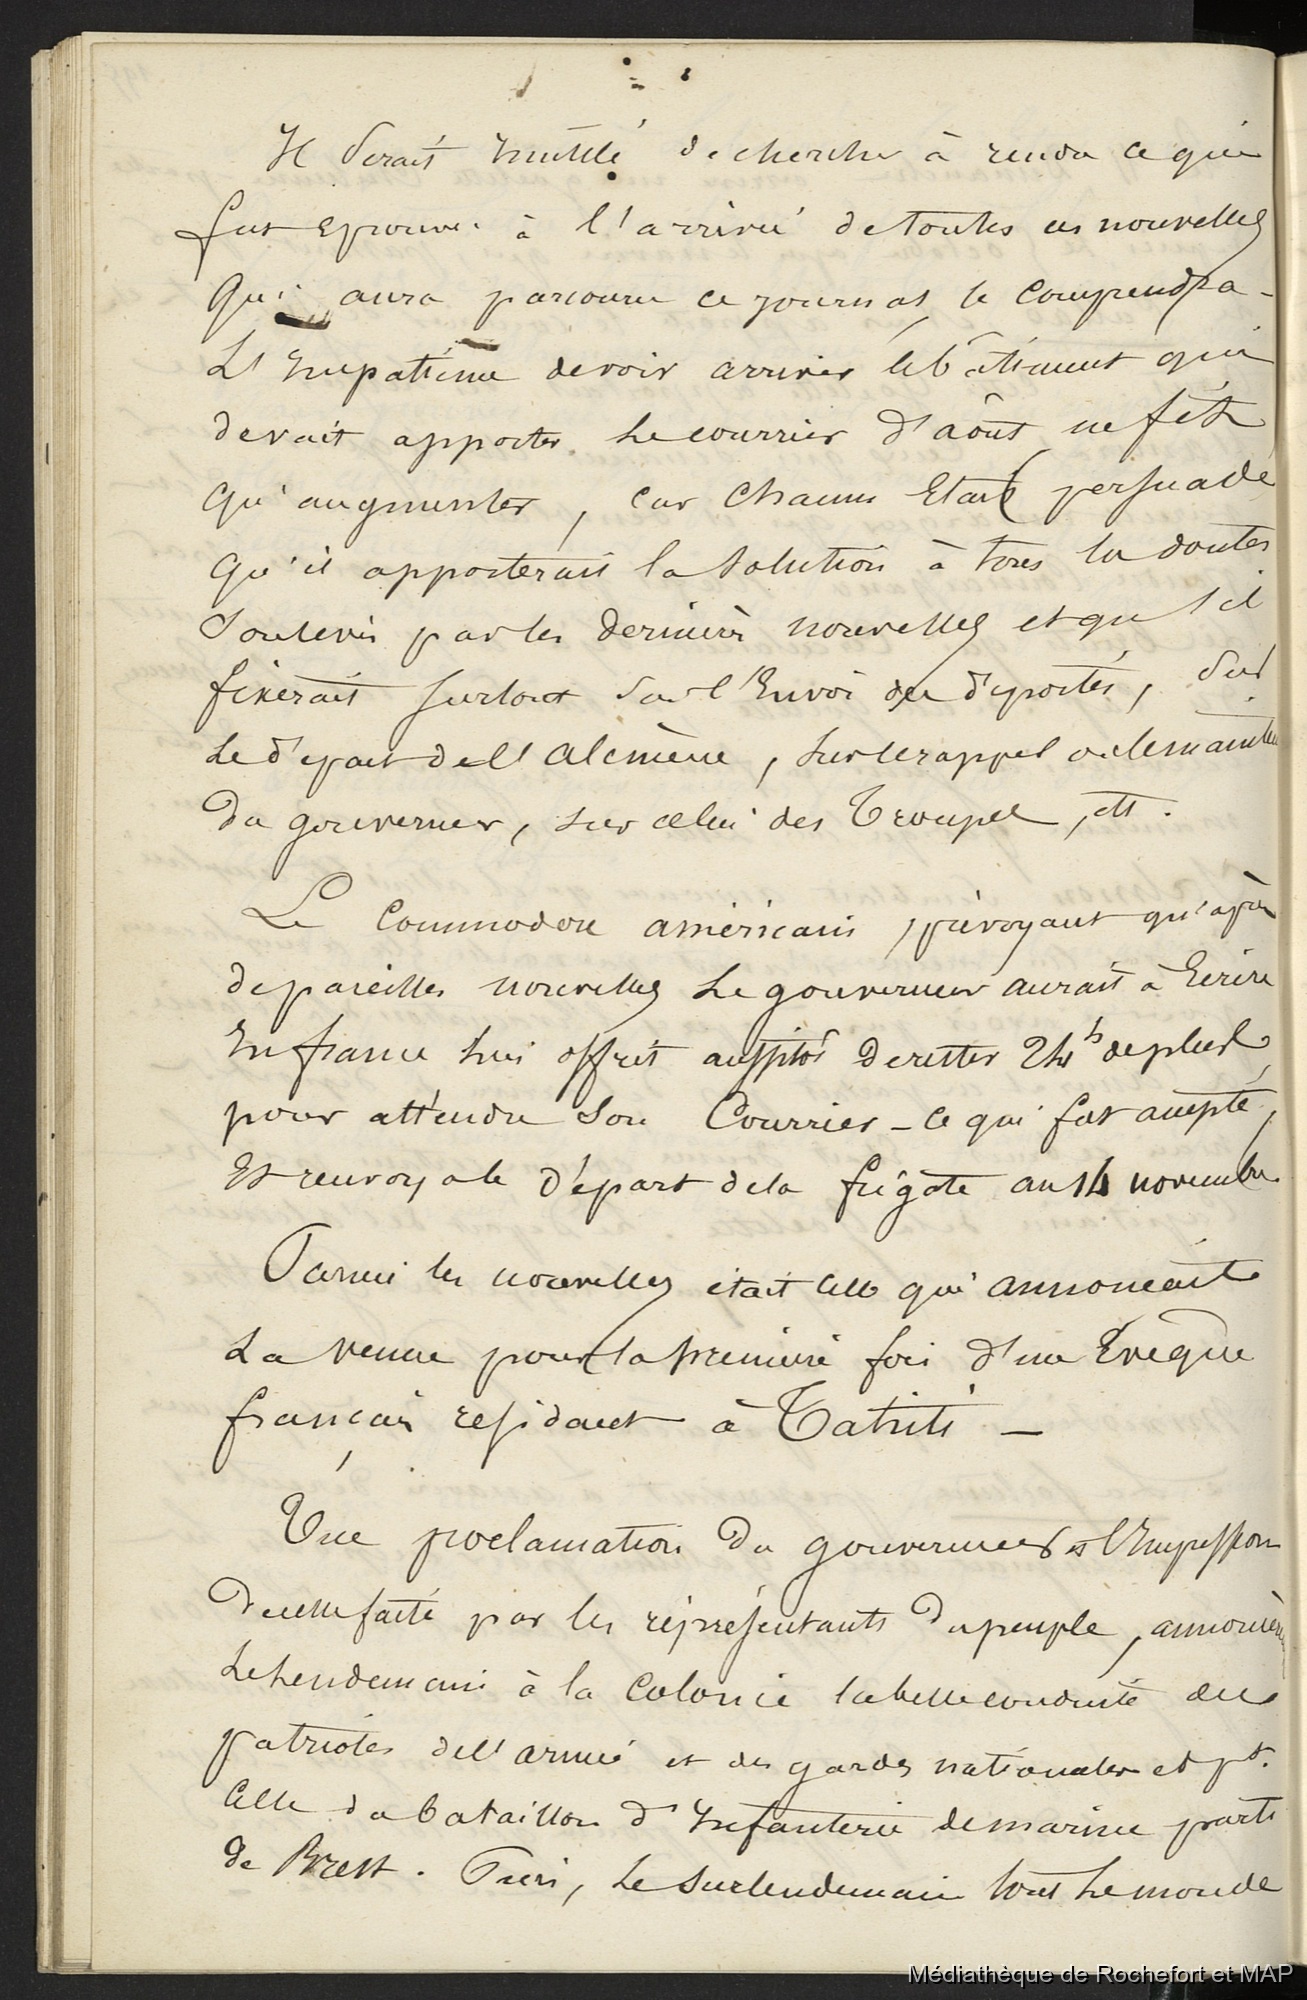 Il serait inutile de chercher à rendre ce qui
fut eprouvé à l'arrivée de toutes ces nouvelles
qui aura parcouru ce journal, le comprendra -
L'impatience de voir arriver le bâtiment qui
devait apporter le courrier d'août ne fit
qu'augmenter, car chacun etait persuadé
qu'il apporterait la solution à tous les doutes
soulevés par les dernières nouvelles et qu'il
fixerait surtout sur l'envoi des déportés, sur
le départ de l'Alcmène, sur le rappel ou le maintien
du gouverneur, sur celui des troupes, etc.
Le Commodore américain, prévoyant qu'après
de pareilles nouvelles le gouverneur aurait à écrire
en france lui offrit aussitôt de rester 24h de plus
pour attendre son Courrier - ce qui fut accepté,
et renvoya le départ de la frégate au 14 novembre
Parmi les nouvelles était celle qui annonçait
la venue pour la première fois d'un Evêque
français residant à Tahiti -
Une proclamation du gouverneur et l'impression
de celle faite par les représentants du peuple, annoncèrent
le lendemain à la Colonie la belle conduite des
patriotes de l'armée et des gardes nationales et pt.
celle du bataillon d'infanterie de marine parti
de Brest. Puis, le surlendemain tout le monde
Médiathèque de Rochefort et MAP